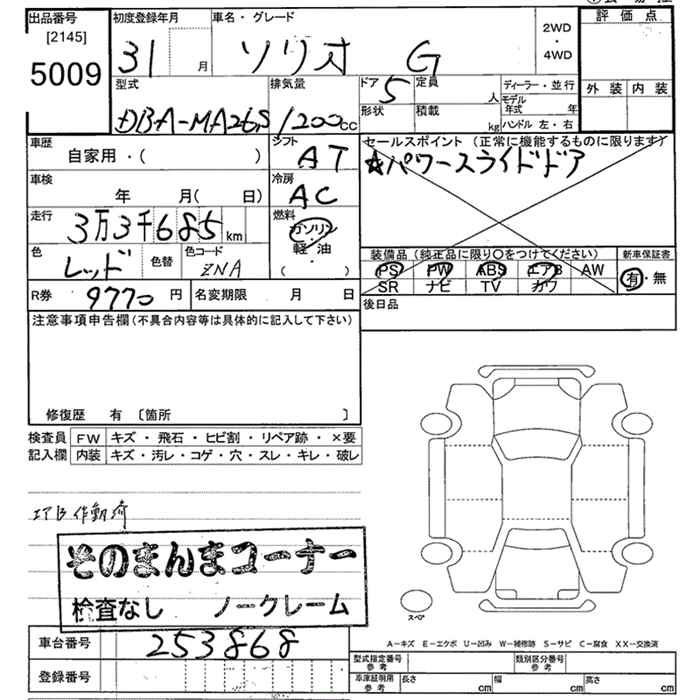 出品番号 初度登録年月 車名・グレード 評価点
[2145]
5009 31 月 ソリオ G 2WD・4WD
型式 排気量 ドア 定員 ディーラー・並行 外装 内装
5 人 モデル年式 年
DBA-MA26S 1200cc 形状 積載 kg ハンドル 左・右
車歴 シフト セールスポイント (正常に機能するものに限ります)
自家用・( ) AT ☆パワースライドドア
車検 冷房
年 月( 日) AC
走行 燃料
3万3千685km ガソリン
軽・油
色 色替 色コード ( ・ ) 装備品 (純正品に限り○をつけてください) 新車保証書
レッド ZNA PS PW ABS エアB AW 有・無
SR ナビ TV カワ
R券 9770円 名変期限 月 日 後日品
注意事項申告欄 (不具合内容等は具体的に記入して下さい)
修復歴 有 〔箇所 〕
検査員 FW キズ・飛石・ヒビ割・リペア跡・×要
記入欄 内装 キズ・汚レ・コゲ・穴・スレ・キレ・破レ
エアB作動済
そのまんまコーナー
検査なし ノークレーム
スペア
A-キズ E-エクボ U-凹み W-補修跡 S-サビ C-腐食 XX-交換済
車台番号 253868
型式指定番号 参考 類別区分番号 参考
登録番号 車庫証明用 参考 長さ cm 幅 cm 高さ cm